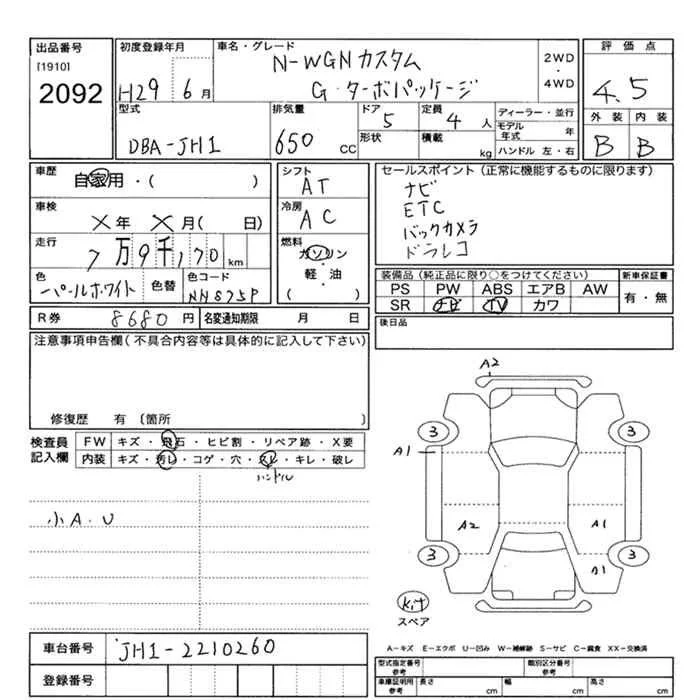 出品番号
[1910]
2092
初度登録年月
H29 6月
車名・グレード
N-WGNカスタム
G・ターボパッケージ
2WD
・
4WD
評価点
4.5
外装 内装
B B
型式
DBA-JH1
排気量
650 CC
ドア
5
定員
4 人
形状
積載
kg
ディーラー・並行
モデル年式 年
ハンドル 左・右
車歴
自家用・( )
車検
X年 X月( 日)
走行
7万9千,170 km
色
パールホワイト
色替
色コード
NH875P
シフト
AT
冷房
AC
燃料
ガソリン
軽・油
( )
セールスポイント(正常に機能するものに限ります)
ナビ
ETC
バックカメラ
ドラレコ
装備品(純正品に限り○をつけてください)
PS PW ABS エアB AW
SR ナビ TV カワ
新車保証書
有・無
R券 8680 円 名変通知期限 月 日
後日品
注意事項申告欄(不具合内容等は具体的に記入して下さい)
修復歴 有〔箇所 〕
検査員
記入欄
FW キズ・飛石・ヒビ割・リペア跡・X要
内装 キズ・汚レ・コゲ・穴・スレ・キレ・破レ
ハンドル
小A.U
A2
3 3
A1
A2 A1
A1
3 3
kit
スペア
A-キズ E-エクボ U-凹み W-補修跡 S-サビ C-腐食 XX-交換済
車台番号 JH1-2210260
登録番号
型式指定番号
参考
類別区分番号
参考
車庫証明用
参考
長さ cm 幅 cm 高さ cm